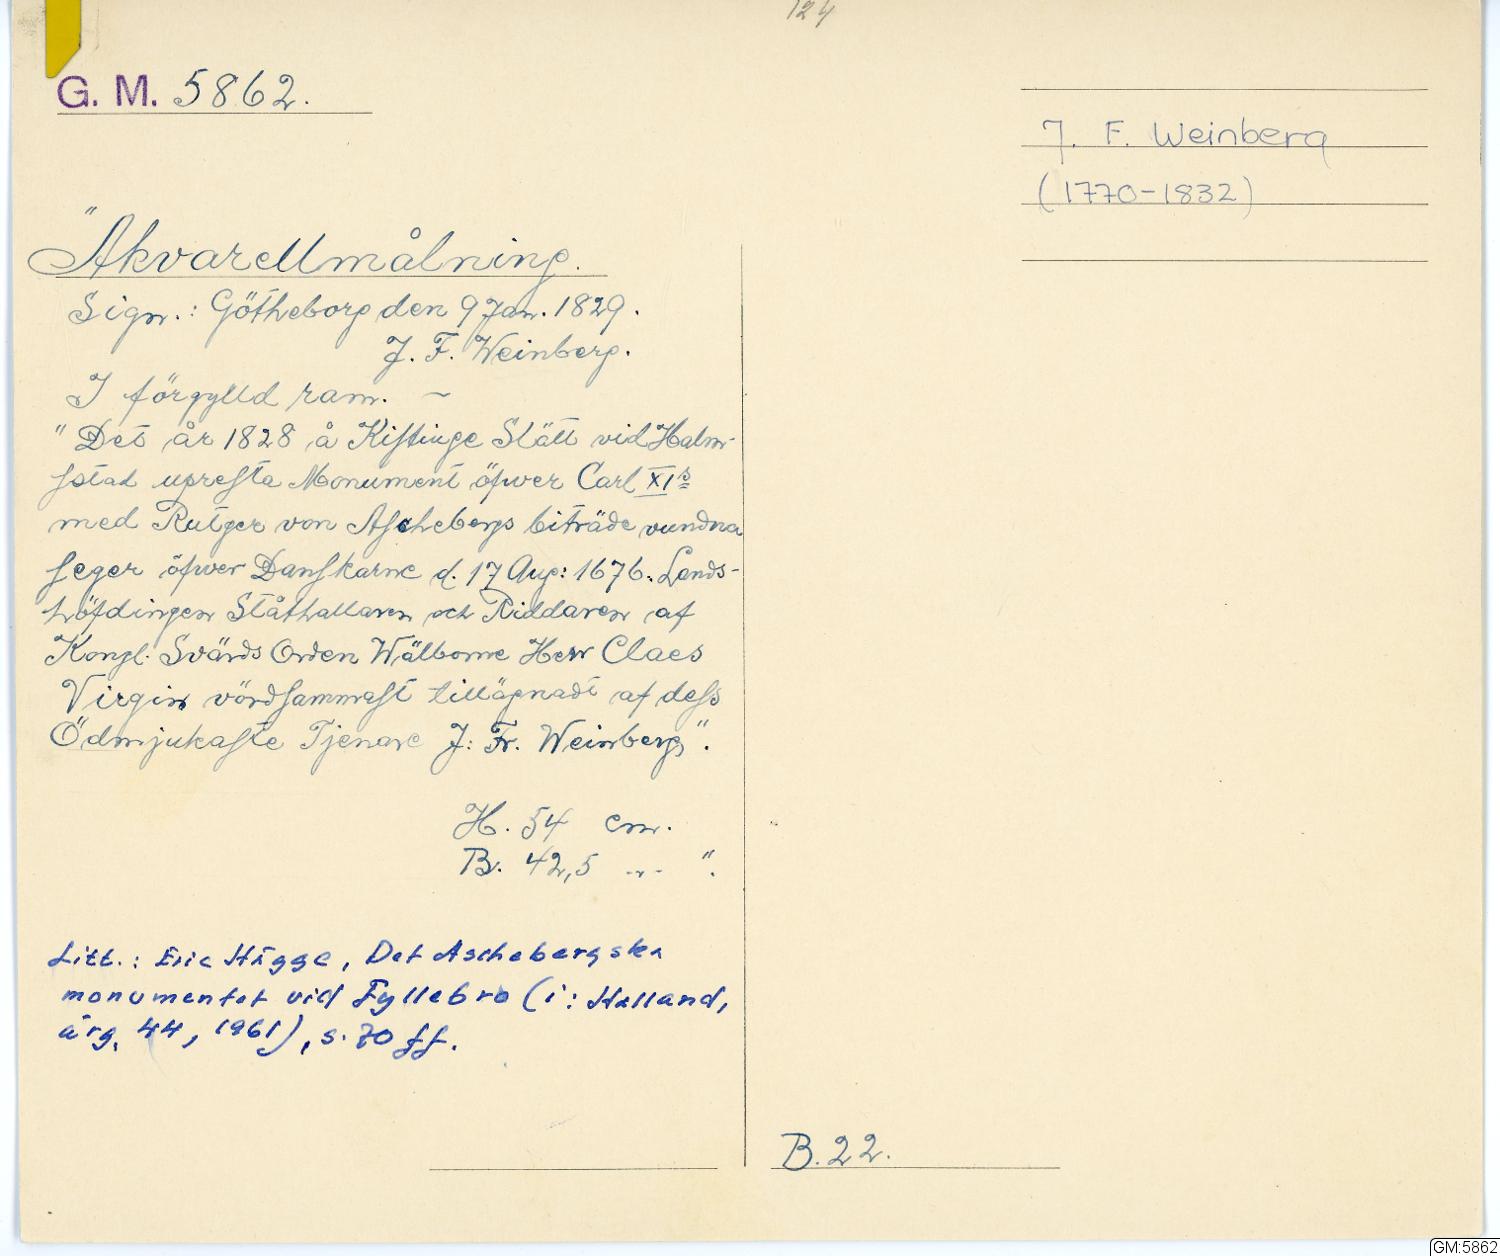 124
G. M. 5862.
J. F. Weinberg
(1770-1832)
"Akvarellmålning.
Sign.: Götheborg den 9 Jan. 1829.
J. F. Weinberg.
I förgylld ram. –
"Det år 1828 å Kistinge Slätt vid Halm-
stad upresta Monument öfwer Carl XIs
med Rutger von Aschebergs biträde vundna
seger öfwer Danskarne d. 17 Aug: 1676. Lands-
höfdingen Ståthallaren och Riddaren af
Kongl. Svärds Orden Wälborne Herr Claes
Virgin vördsammast tillägnadt af dess
Ödmjukaste Tjenare J: Fr. Weinberg".
H. 54 cm.
B. 42,5 -"-.
Litt.: Eric Hägge, Det Aschebergska
monumentet vid Fyllebro (i: Halland,
årg. 44, 1961), s. 70 ff.
B.22.
GM:5862